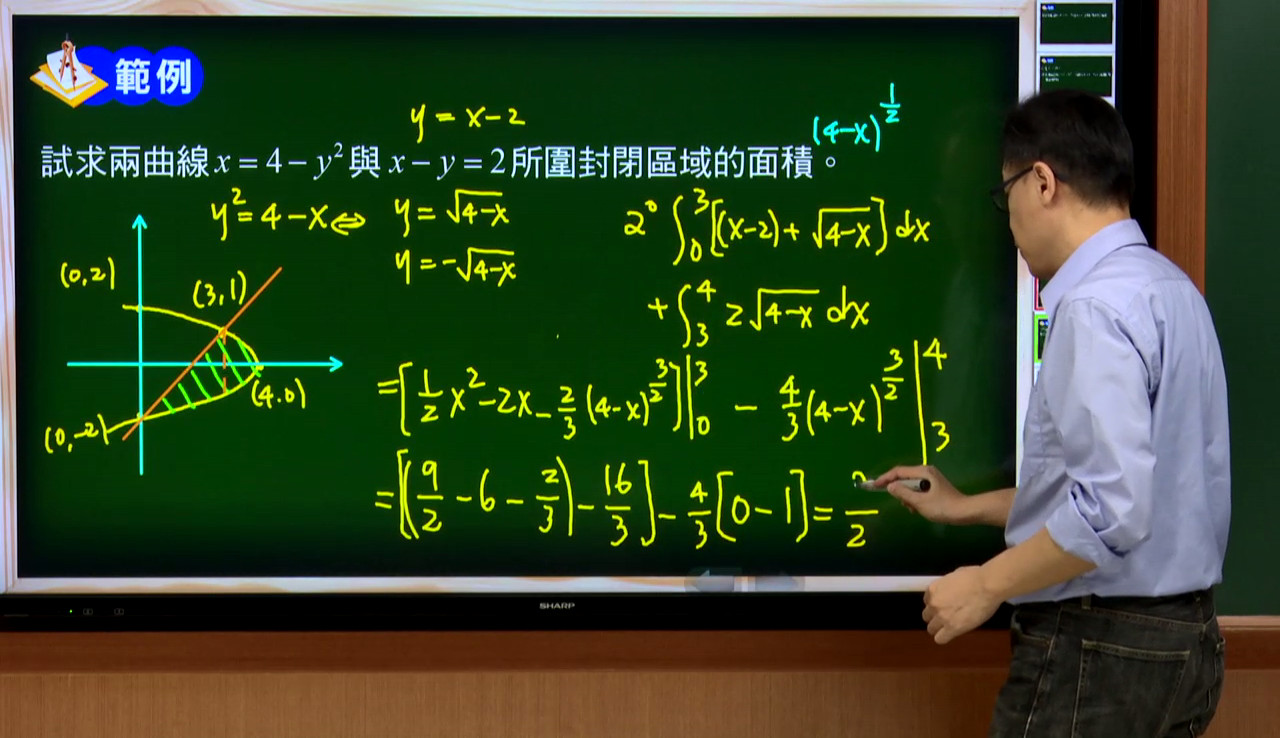 範例
y = x-2
(4-x)^{1/2}
試求兩曲線 x = 4 - y² 與 x - y = 2 所圍封閉區域的面積。
y² = 4-x ⇔ y = √(4-x)
y = -√(4-x)
2° ∫_0^3 [(x-2) + √(4-x)] dx
+ ∫_3^4 2√(4-x) dx
(0,2)
(3,1)
(4,0)
(0,-2)
= [1/2 x² - 2x - 2/3 (4-x)^{3/2}] |_0^3 - 4/3 (4-x)^{3/2} |_3^4
= [(9/2 - 6 - 2/3) - 16/3] - 4/3 [0-1] = /2
SHARP